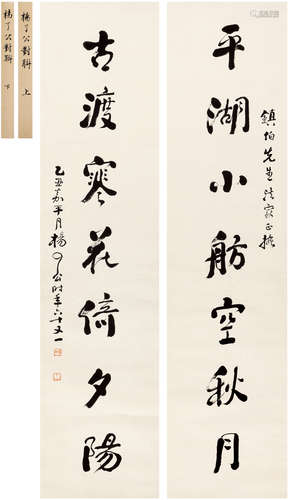 平湖小舫空秋月
鎮伯先生法家正搊
古渡寒花倚夕陽
乙丑嘉平月楊了公時年六十又一
楊了公對聯 上
楊了公對聯 下